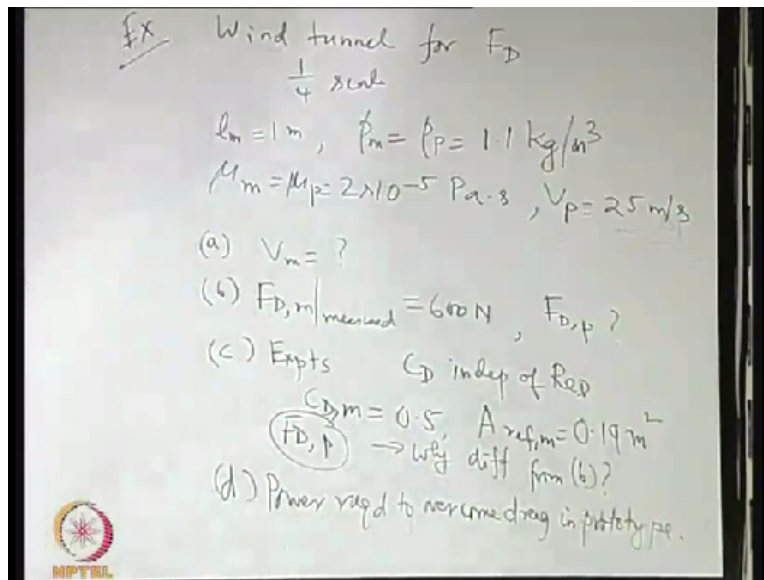 Ex Wind tunnel for F_D
1/4 scale
l_m = 1 m, ρ_m = ρ_p = 1.1 kg/m³
μ_m = μ_p = 2x10⁻⁵ Pa.s, V_p = 25 m/s
(a) V_m = ?
(b) F_D,m|measured = 600 N, F_D,p ?
(c) Expts C_D indep of Re_D
C_D,m = 0.5, A_ref,m = 0.19 m²
F_D,p → why diff from (b)?
(d) Power reqd to overcome drag in prototype.
NPTEL